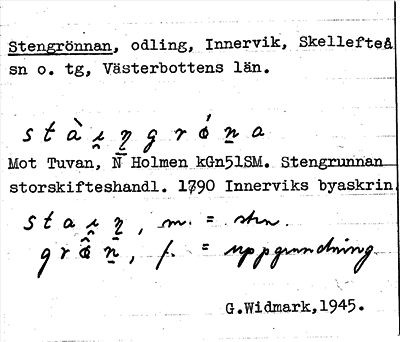 Stengrönnan, odling, Innervik, Skellefteå
sn o. tg, Västerbottens län.
Mot Tuvan, N Holmen kGn51SM. Stengrunnan
storskifteshandl. 1790 Innerviks byaskrin.
m. = sten.
f. = uppgrundning
G.Widmark,1945.